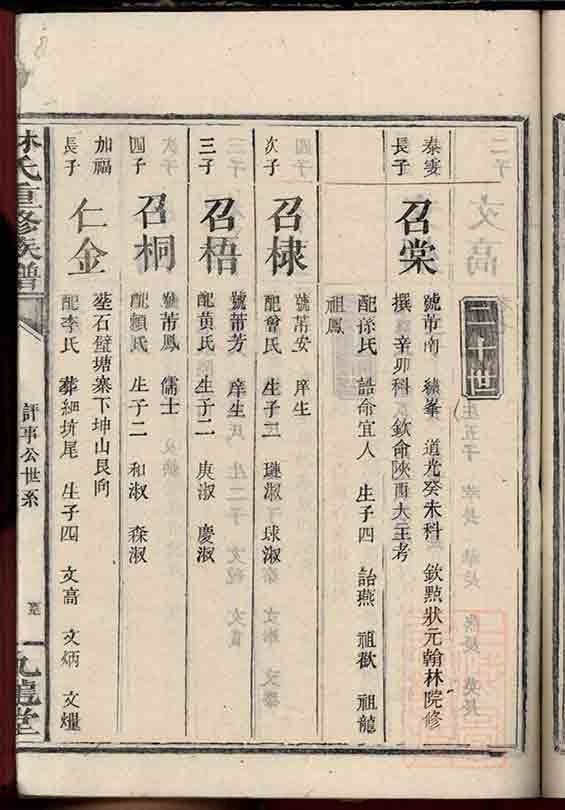 二十四世
泰雯
長子
召棠
號芾南 道光癸未科 欽點狀元翰林院修
撰 辛卯科 欽命陝甘大主考
配孫氏 誥命宜人 生子四 詒燕 祖歡 祖龍
祖鳳
次子
召棣
號芾安 庠生
配曾氏 生子二 璉淑 球淑
三子
召梧
號芾芳 庠生
配黄氏 生子二 庚淑 慶淑
四子
召桐
號芾鳳 儒士
配賴氏 生子二 和淑 森淑
加福
長子
仁金
塟石壁塘寨下坤山艮向
配李氏 葬細坑尾 生子四 文高 文炳 文耀
林氏重修族譜
評事公世系
九龍堂